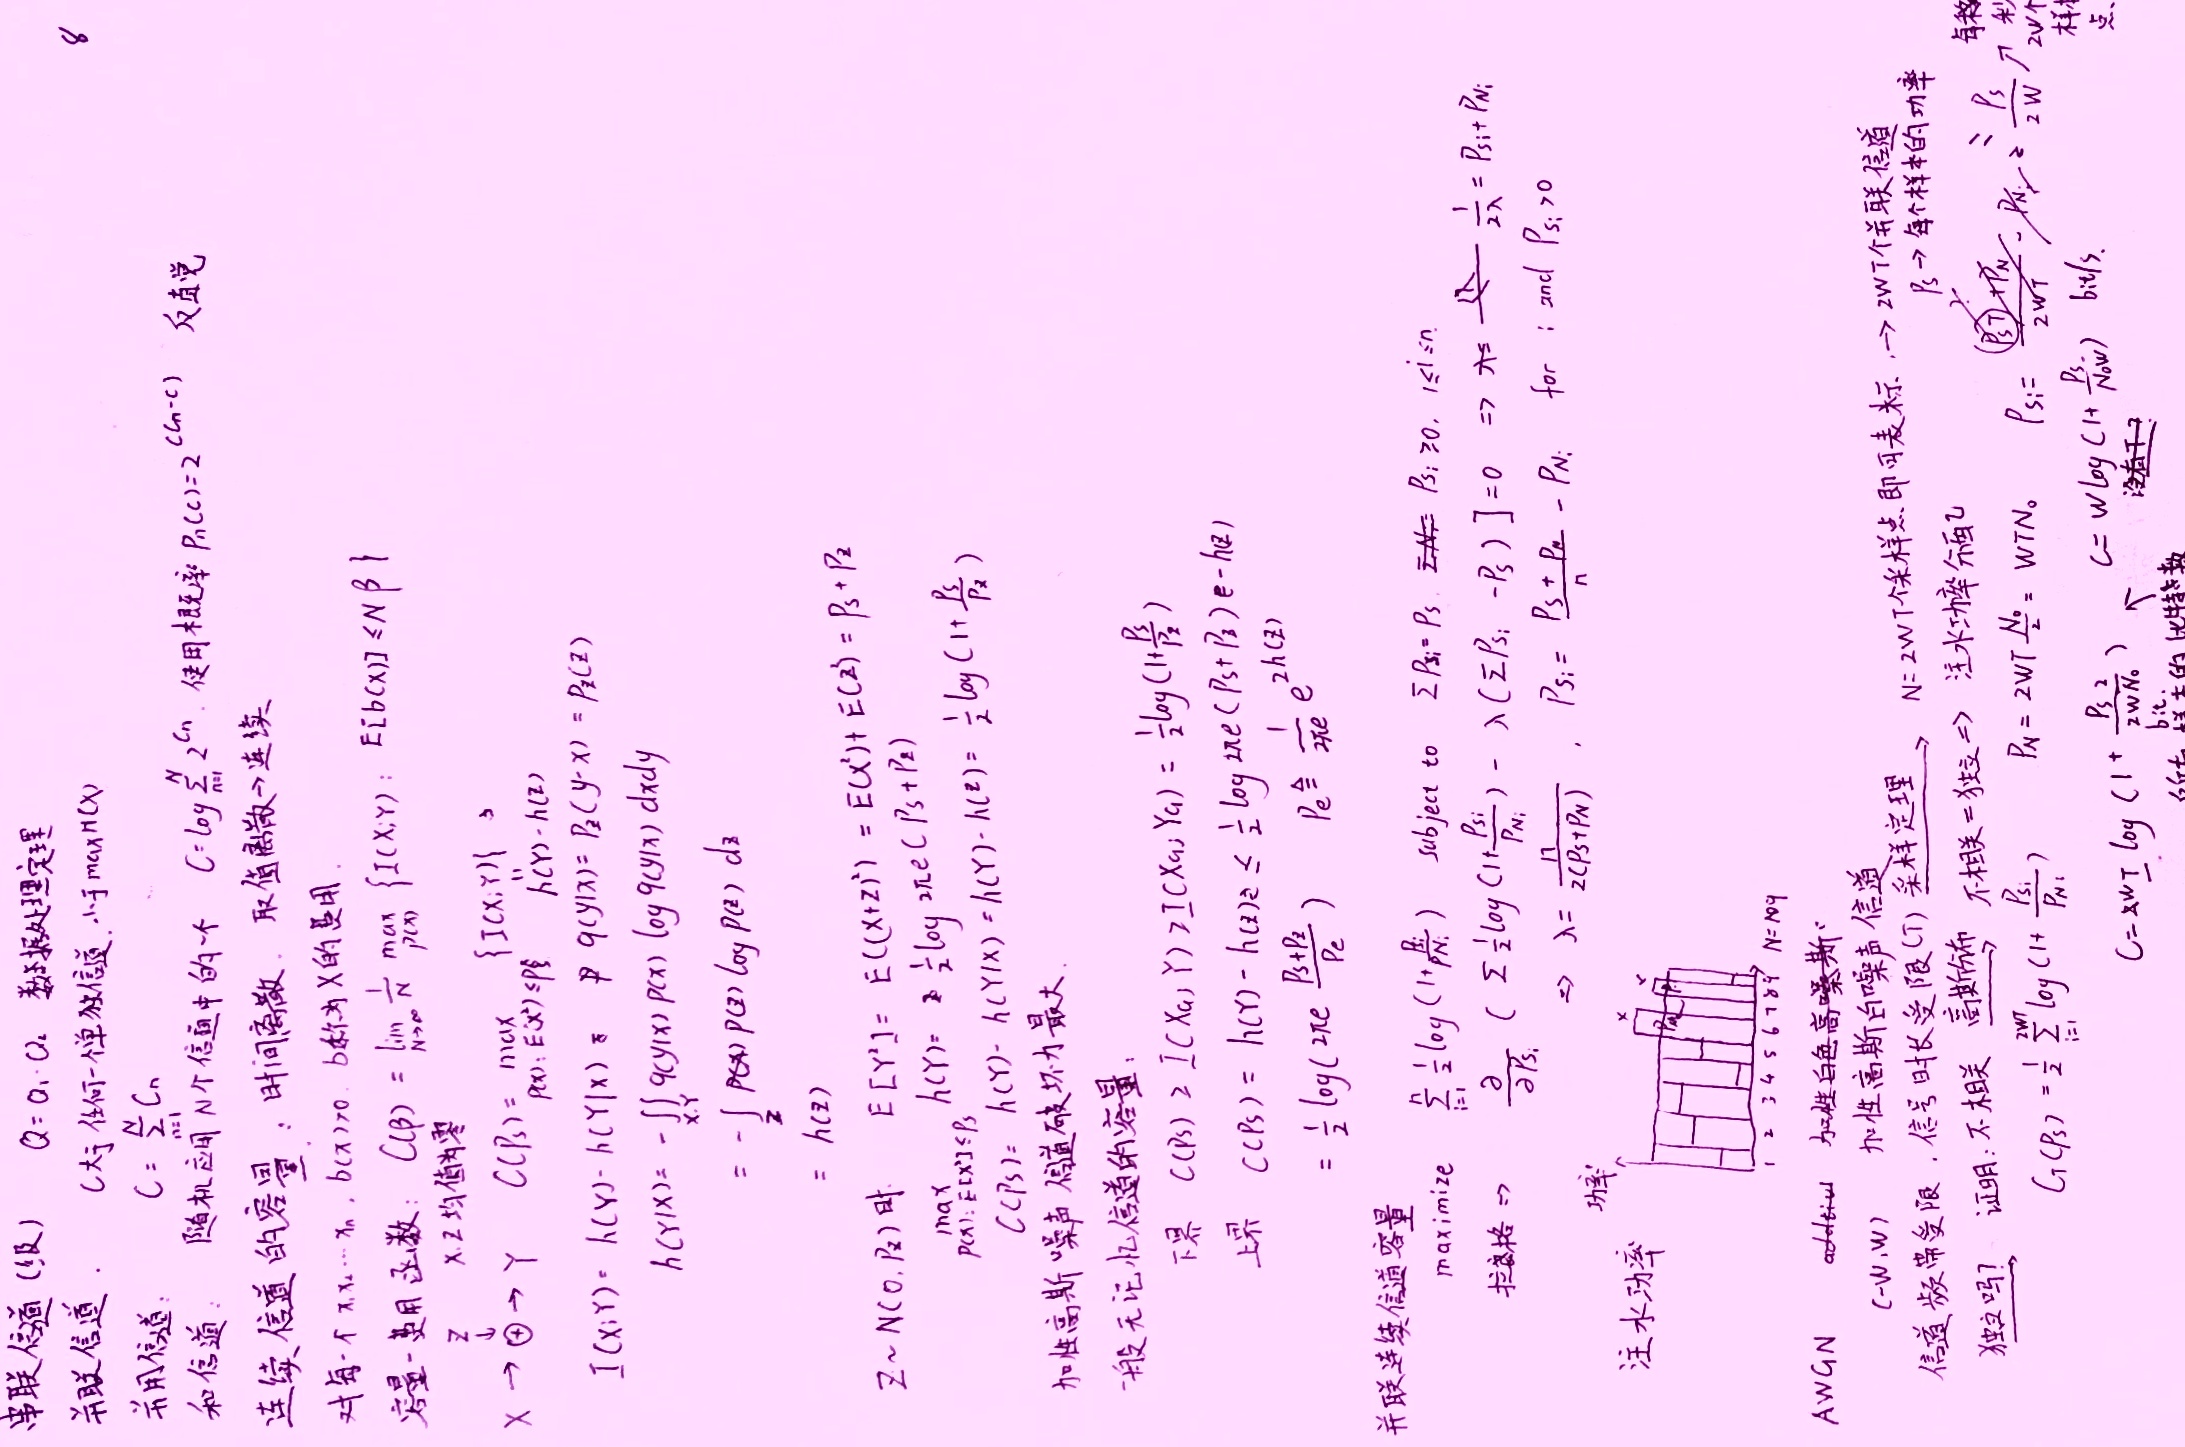 串联信道(级) Q=Q₁·Q₂ 数据处理定理
8
并联信道. C大于任何一个单独信道,小于maxH(X)
并用信道: C=∑_{n=1}^{N} Cn
和信道: 随机应用N个信道中的一个 C=log∑_{n=1}^{N} 2^{Cn}. 使用概率Pn(C)=2^{(Cn-C)} 反直觉
连续信道的容量:时间离散. 取值离散→连续
对每个x₁x₂…xn, b(x)>0. b称为X的费用.
容量-费用函数: C(β)=lim_{N→∞} 1/N max_{P(x)} {I(X;Y): E[b(X)]≤Nβ}
Z X.Z均值为零
X→⊕→Y C(Ps)=max_{P(x):E(X²)≤Ps} {I(X;Y)}
h(Y)-h(Z)
I(X;Y)=h(Y)-h(Y|X) q(y|x)=Pz(y-x)=Pz(z)
h(Y|X)=-∬_{X.Y} q(y|x)p(x) log q(y|x) dxdy
=-∫_Z P(z) log P(z) dz
=h(Z)
Z~N(0,Pz)时. E[Y²]=E((X+Z)²)=E(X²)+E(Z²)=Ps+Pz
max_{P(x):E[X²]≤Ps} h(Y)=½log 2πe(Ps+Pz)
C(Ps)=h(Y)-h(Y|X)=h(Y)-h(Z)=½log(1+Ps/Pz)
加性高斯噪声信道破坏力最大.
一般无记忆信道的容量:
下界 C(Ps)≥I(XG;Y)≥I(XG;YG)=½log(1+Ps/Pz)
上界 C(Ps)=h(Y)-h(Z)≤½log 2πe(Ps+Pz)-h(Z)
=½log(2πe (Ps+Pz)/Pe) Pe≜1/(2πe) e^{2h(Z)}
并联连续信道容量
maximize ∑_{i=1}^{n} ½log(1+Psi/PNi) subject to ∑Psi=Ps. Psi≥0, 1≤i≤n
拉格⇒ ∂/∂Psi (∑½log(1+Psi/PNi)-λ(∑Psi-Ps)]=0 ⇒ 1/2λ=Psi+PNi
⇒ λ=n/2(Ps+PN), Psi=(Ps+PN)/n-PNi for i and Psi>0
功率
注水功率
x x
1 2 3 4 5 6 7 8 9 N=9
AWGN addtive 加性白色高噪斯
(-W,W) 加性高斯白噪声信道
信道频带受限,信号时长受限(T) 采样定理→ N=2WT个采样点即可表标,→2WT个并联信道
Ps→每个样本的功率
独立吗?→ 证明:不相关 高斯分布→ 不相关=独立⇒ 注水功率分配
CT(Ps)=½∑_{i=1}^{2WT} log(1+Psi/PNi) PN=2WT N₀/2=WTN₀ Psi=((PsT)+PN)/2WT-PNi=Ps/2W ↗
每秒
2W个
样
点、
C=WT log(1+Ps2/2WN₀) C=Wlog(1+Ps/N₀W) bit/s.
bit. 没有T?
样本的比特数